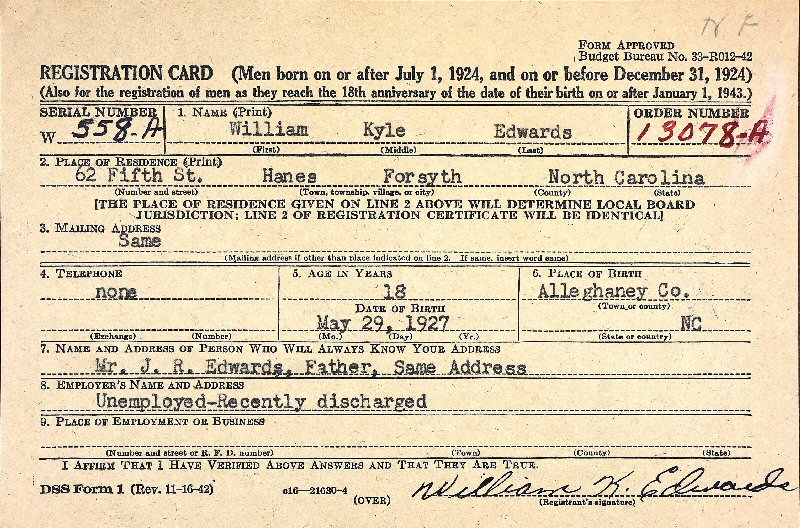 N F
FORM APPROVED
Budget Bureau No. 33-R012-42
REGISTRATION CARD (Men born on or after July 1, 1924, and on or before December 31, 1924)
(Also for the registration of men as they reach the 18th anniversary of the date of their birth on or after January 1, 1943.)
SERIAL NUMBER 1. NAME (Print) ORDER NUMBER
W 558-A William Kyle Edwards 13078-A
(First) (Middle) (Last)
2. PLACE OF RESIDENCE (Print)
62 Fifth St. Hanes Forsyth North Carolina
(Number and street) (Town, township, village, or city) (County) (State)
[THE PLACE OF RESIDENCE GIVEN ON LINE 2 ABOVE WILL DETERMINE LOCAL BOARD
JURISDICTION; LINE 2 OF REGISTRATION CERTIFICATE WILL BE IDENTICAL]
3. MAILING ADDRESS
Same
(Mailing address if other than place indicated on line 2. If same, insert word same)
4. TELEPHONE 5. AGE IN YEARS 6. PLACE OF BIRTH
none 18 Alleghaney Co.
DATE OF BIRTH (Town or county)
May 29, 1927 NC
(Exchange) (Number) (Mo.) (Day) (Yr.) (State or country)
7. NAME AND ADDRESS OF PERSON WHO WILL ALWAYS KNOW YOUR ADDRESS
Mr. J. R. Edwards, Father, Same Address
8. EMPLOYER'S NAME AND ADDRESS
Unemployed-Recently discharged
9. PLACE OF EMPLOYMENT OR BUSINESS
(Number and street or R. F. D. number) (Town) (County) (State)
I AFFIRM THAT I HAVE VERIFIED ABOVE ANSWERS AND THAT THEY ARE TRUE.
DSS Form 1 (Rev. 11-16-42) c16-21630-4 William K. Edwards
(OVER) (Registrant's signature)